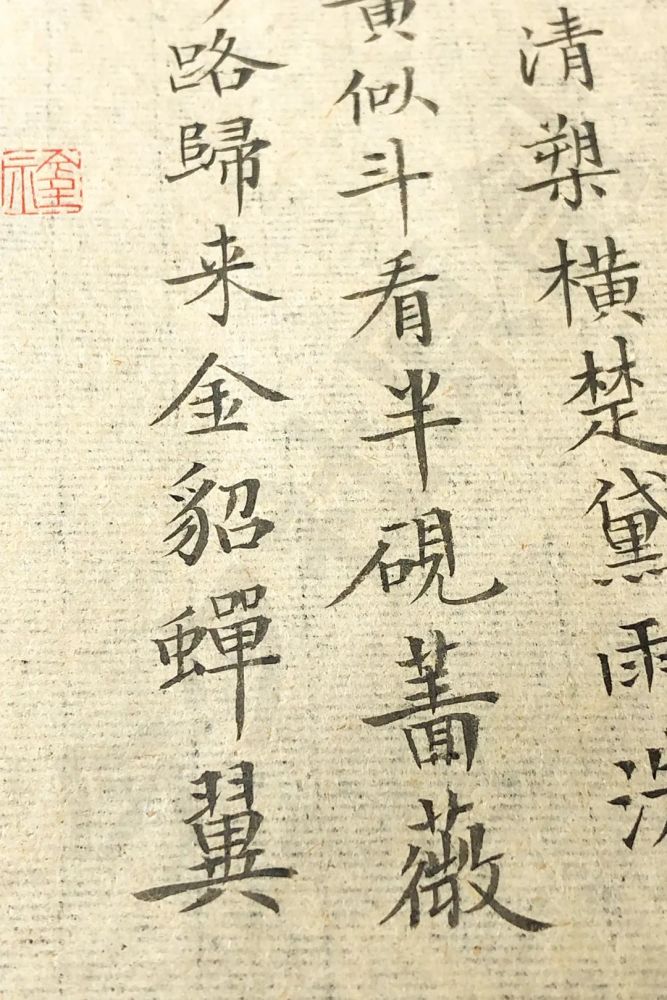 清槊横楚黛雨洗
黄似斗看半硯薔薇
路歸来金貂蟬翼